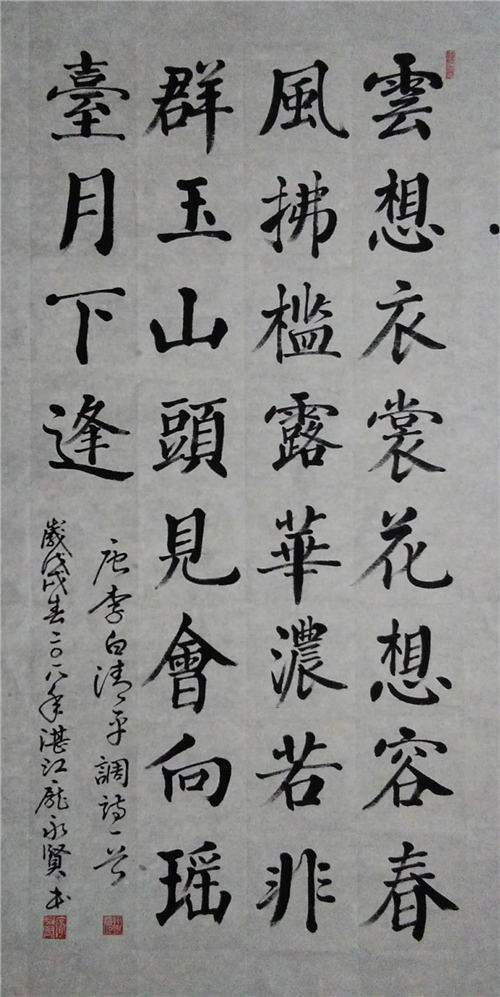 雲想衣裳花想容春
風拂檻露華濃若非
群玉山頭見會向瑶
臺月下逢
唐李白清平調詩一首
歲戊戌春二〇一八年湛江龐永賢书